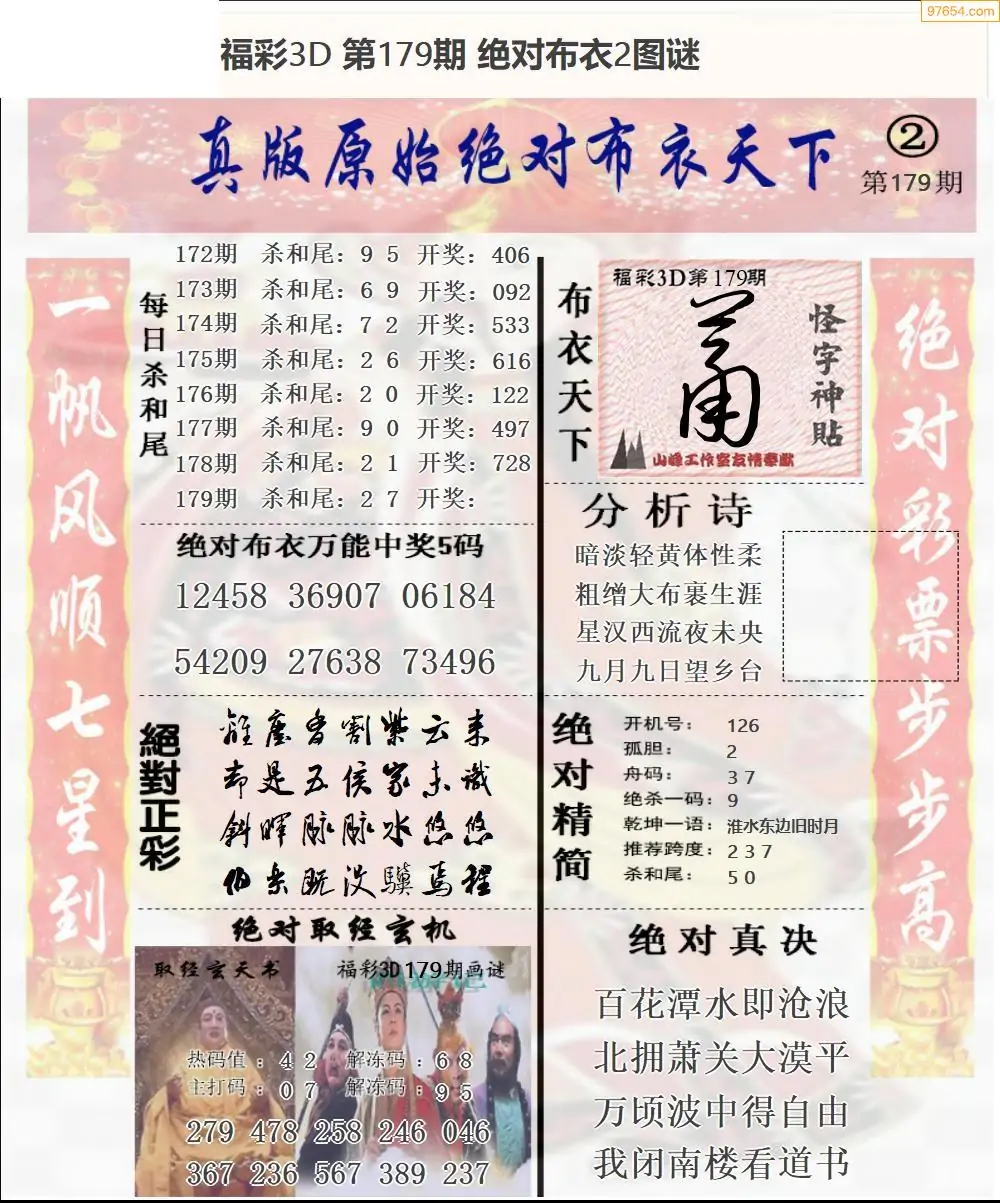 97654.com
福彩3D 第179期 绝对布衣2图谜
真版原始绝对布衣天下
②
第179期
一帆风顺七星到
每日杀和尾
172期 杀和尾：9 5 开奖：406
173期 杀和尾：6 9 开奖：092
174期 杀和尾：7 2 开奖：533
175期 杀和尾：2 6 开奖：616
176期 杀和尾：2 0 开奖：122
177期 杀和尾：9 0 开奖：497
178期 杀和尾：2 1 开奖：728
179期 杀和尾：2 7 开奖：
绝对布衣万能中奖5码
12458 36907 06184
54209 27638 73496
絕對正彩
雒尘曾割紫云来
却是五侯家未识
斜晖脉脉水悠悠
伯乐既没骥焉程
绝对取经玄机
取经玄天书
福彩3D179期画谜
热码值：4 2 解冻码：6 8
主打码：0 7 解冻码：9 5
279 478 258 246 046
367 236 567 389 237
布衣天下
福彩3D第179期
怪字神貼
山峰工作室友情奉献
分析诗
暗淡轻黄体性柔
粗缯大布裹生涯
星汉西流夜未央
九月九日望乡台
绝对精简
开机号： 126
孤胆： 2
舟码： 3 7
绝杀一码：9
乾坤一语：淮水东边旧时月
推荐跨度：2 3 7
杀和尾： 5 0
绝对真决
百花潭水即沧浪
北拥萧关大漠平
万顷波中得自由
我闭南楼看道书
绝对彩票步步高